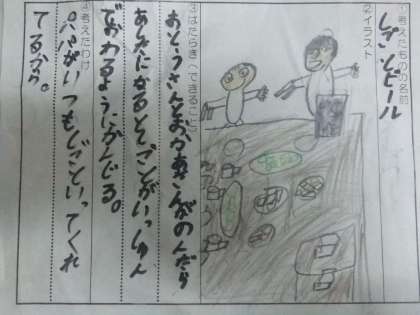 ①考えたものの名前
しごとビール
②イラスト
③はたらき(できること)
おとうさんとおかあさんがのんだら
になるとしごとがいっしゅん
でおわるようにかんじる。
④考えたわけ
パパがいつもしごといってくれ
てるから。